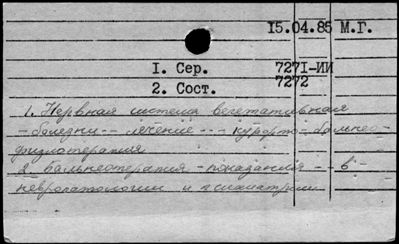 15.04.85 М.Г.
1. Сер. 7271-ИИ
2. Сост. 7272
1. Нервная система вегетативная
- болезни -- лечение --- курорто-бальнео-
физиотерапия
2. Бальнеотерапия - показания -- в
невропатологии и психиатрии